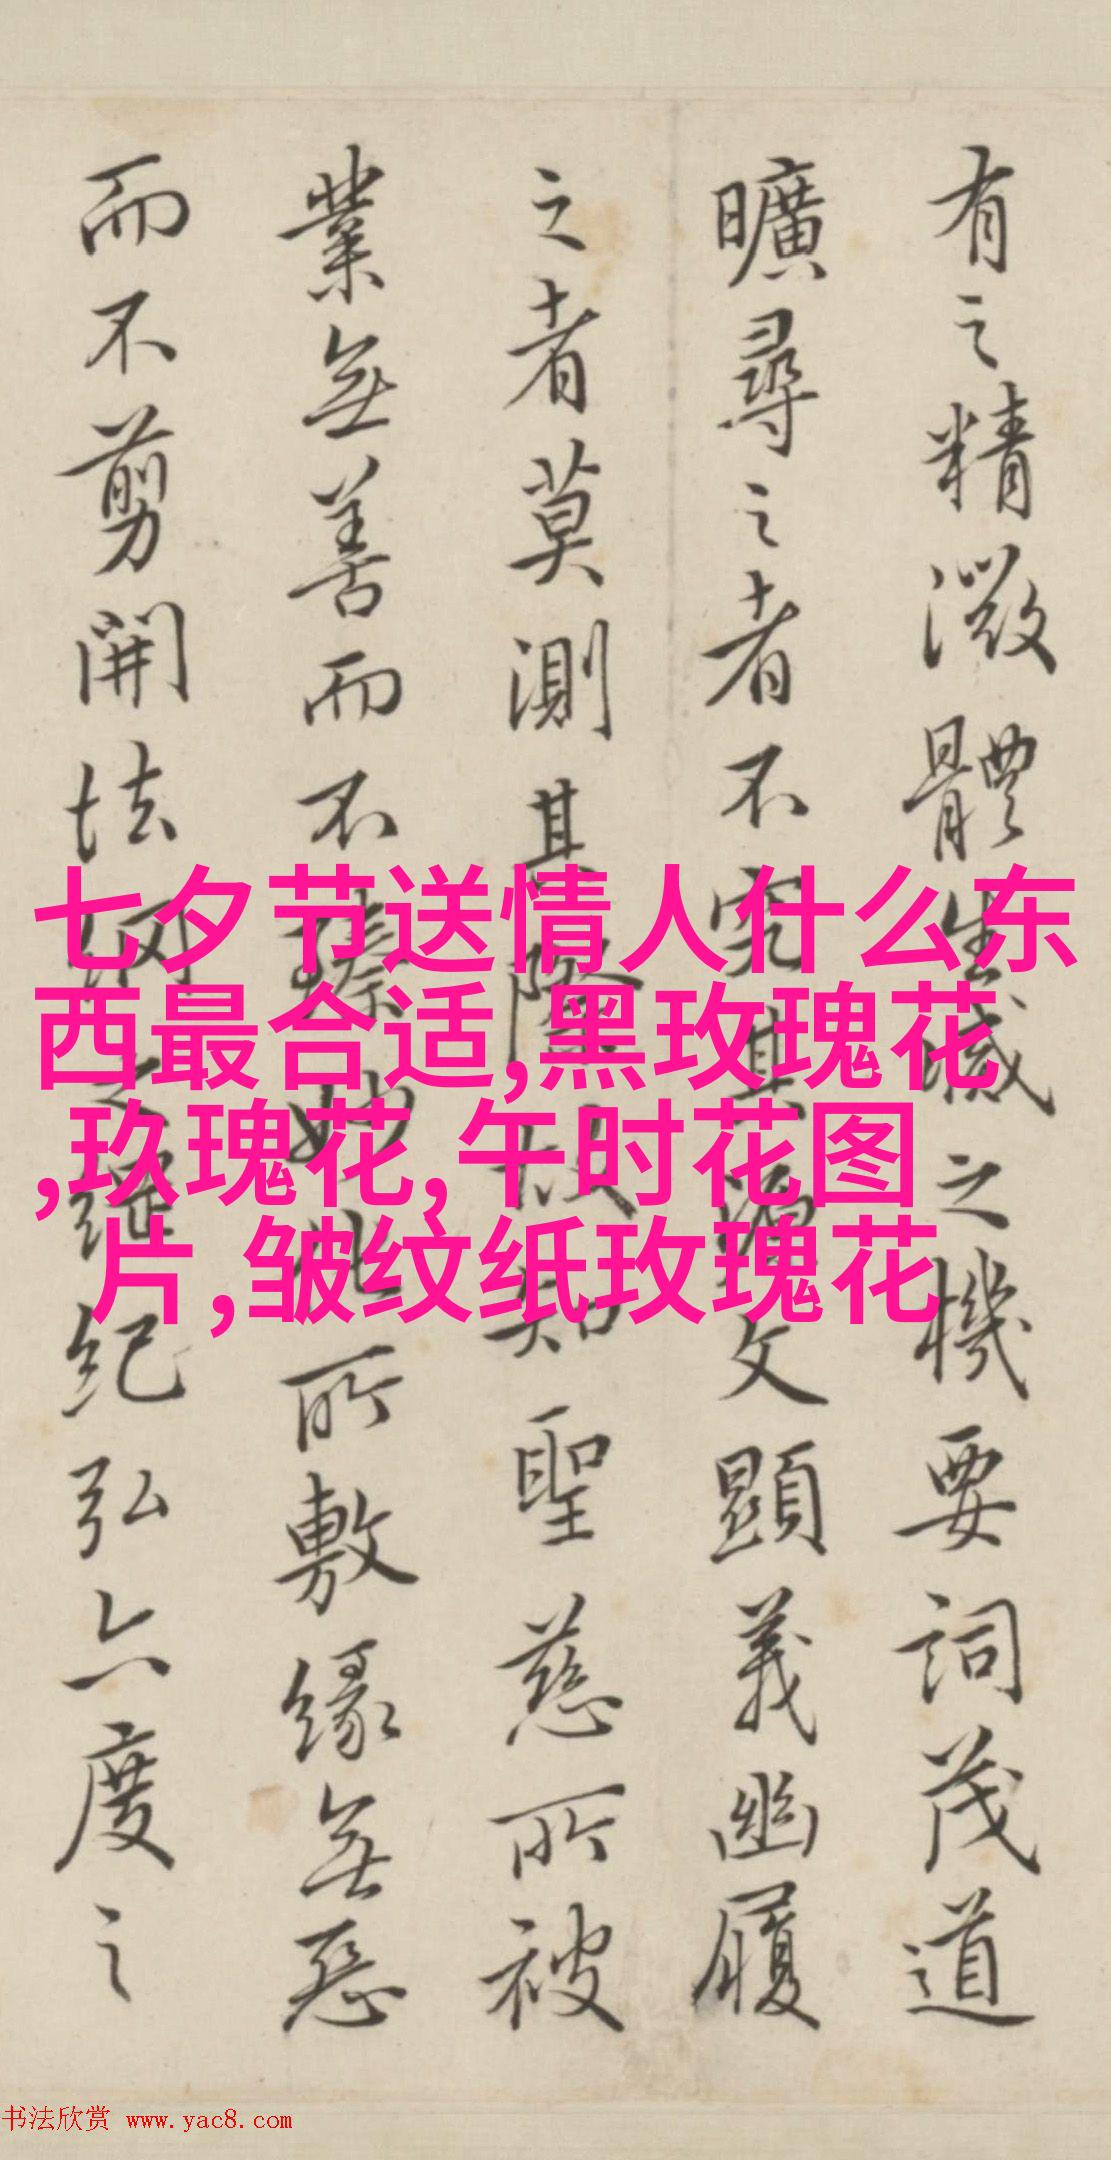 有之精微體生滅之機要詞茂道
曠尋之者不究其源文顯義幽履
之者莫測其際故知聖慈所被
業無善而不臻妙化所敷緣無惡
而不剪開法網之綱紀弘六度之
七夕节送情人什么东
西最合适,黑玫瑰花
,玖瑰花,午时花图
片,皱纹纸玫瑰花
书法欣赏 www.yac8.com